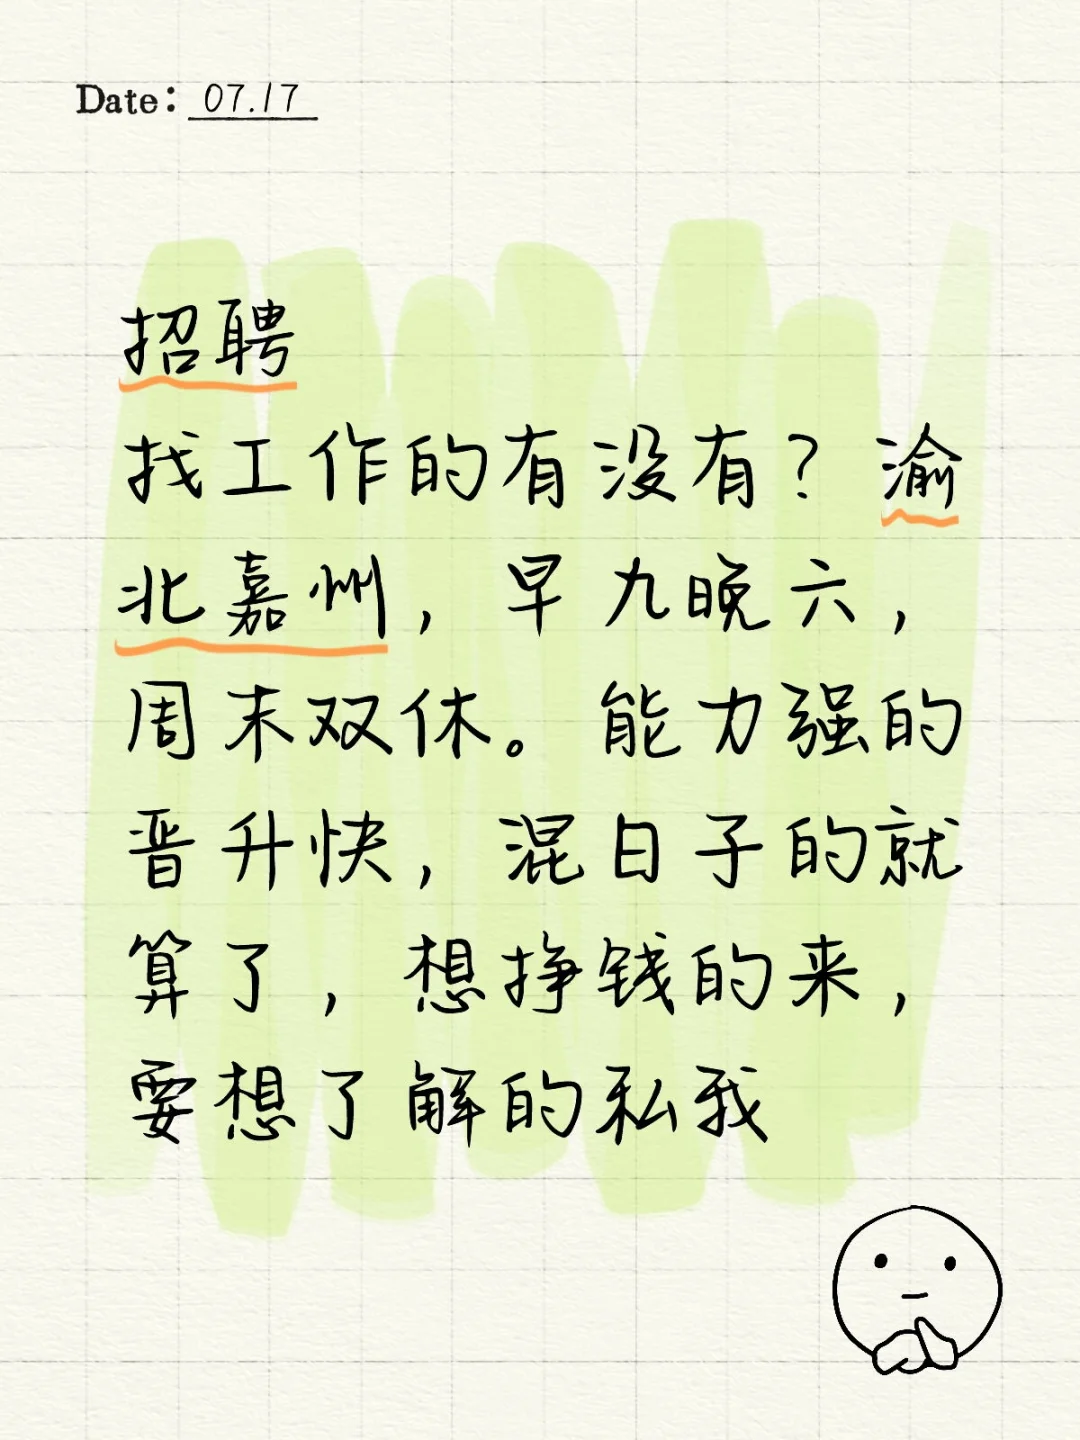 Date: 07.17
招聘
找工作的有没有？渝
北嘉州，早九晚六，
周末双休。能力强的
晋升快，混日子的就
算了，想挣钱的来，
要想了解的私我